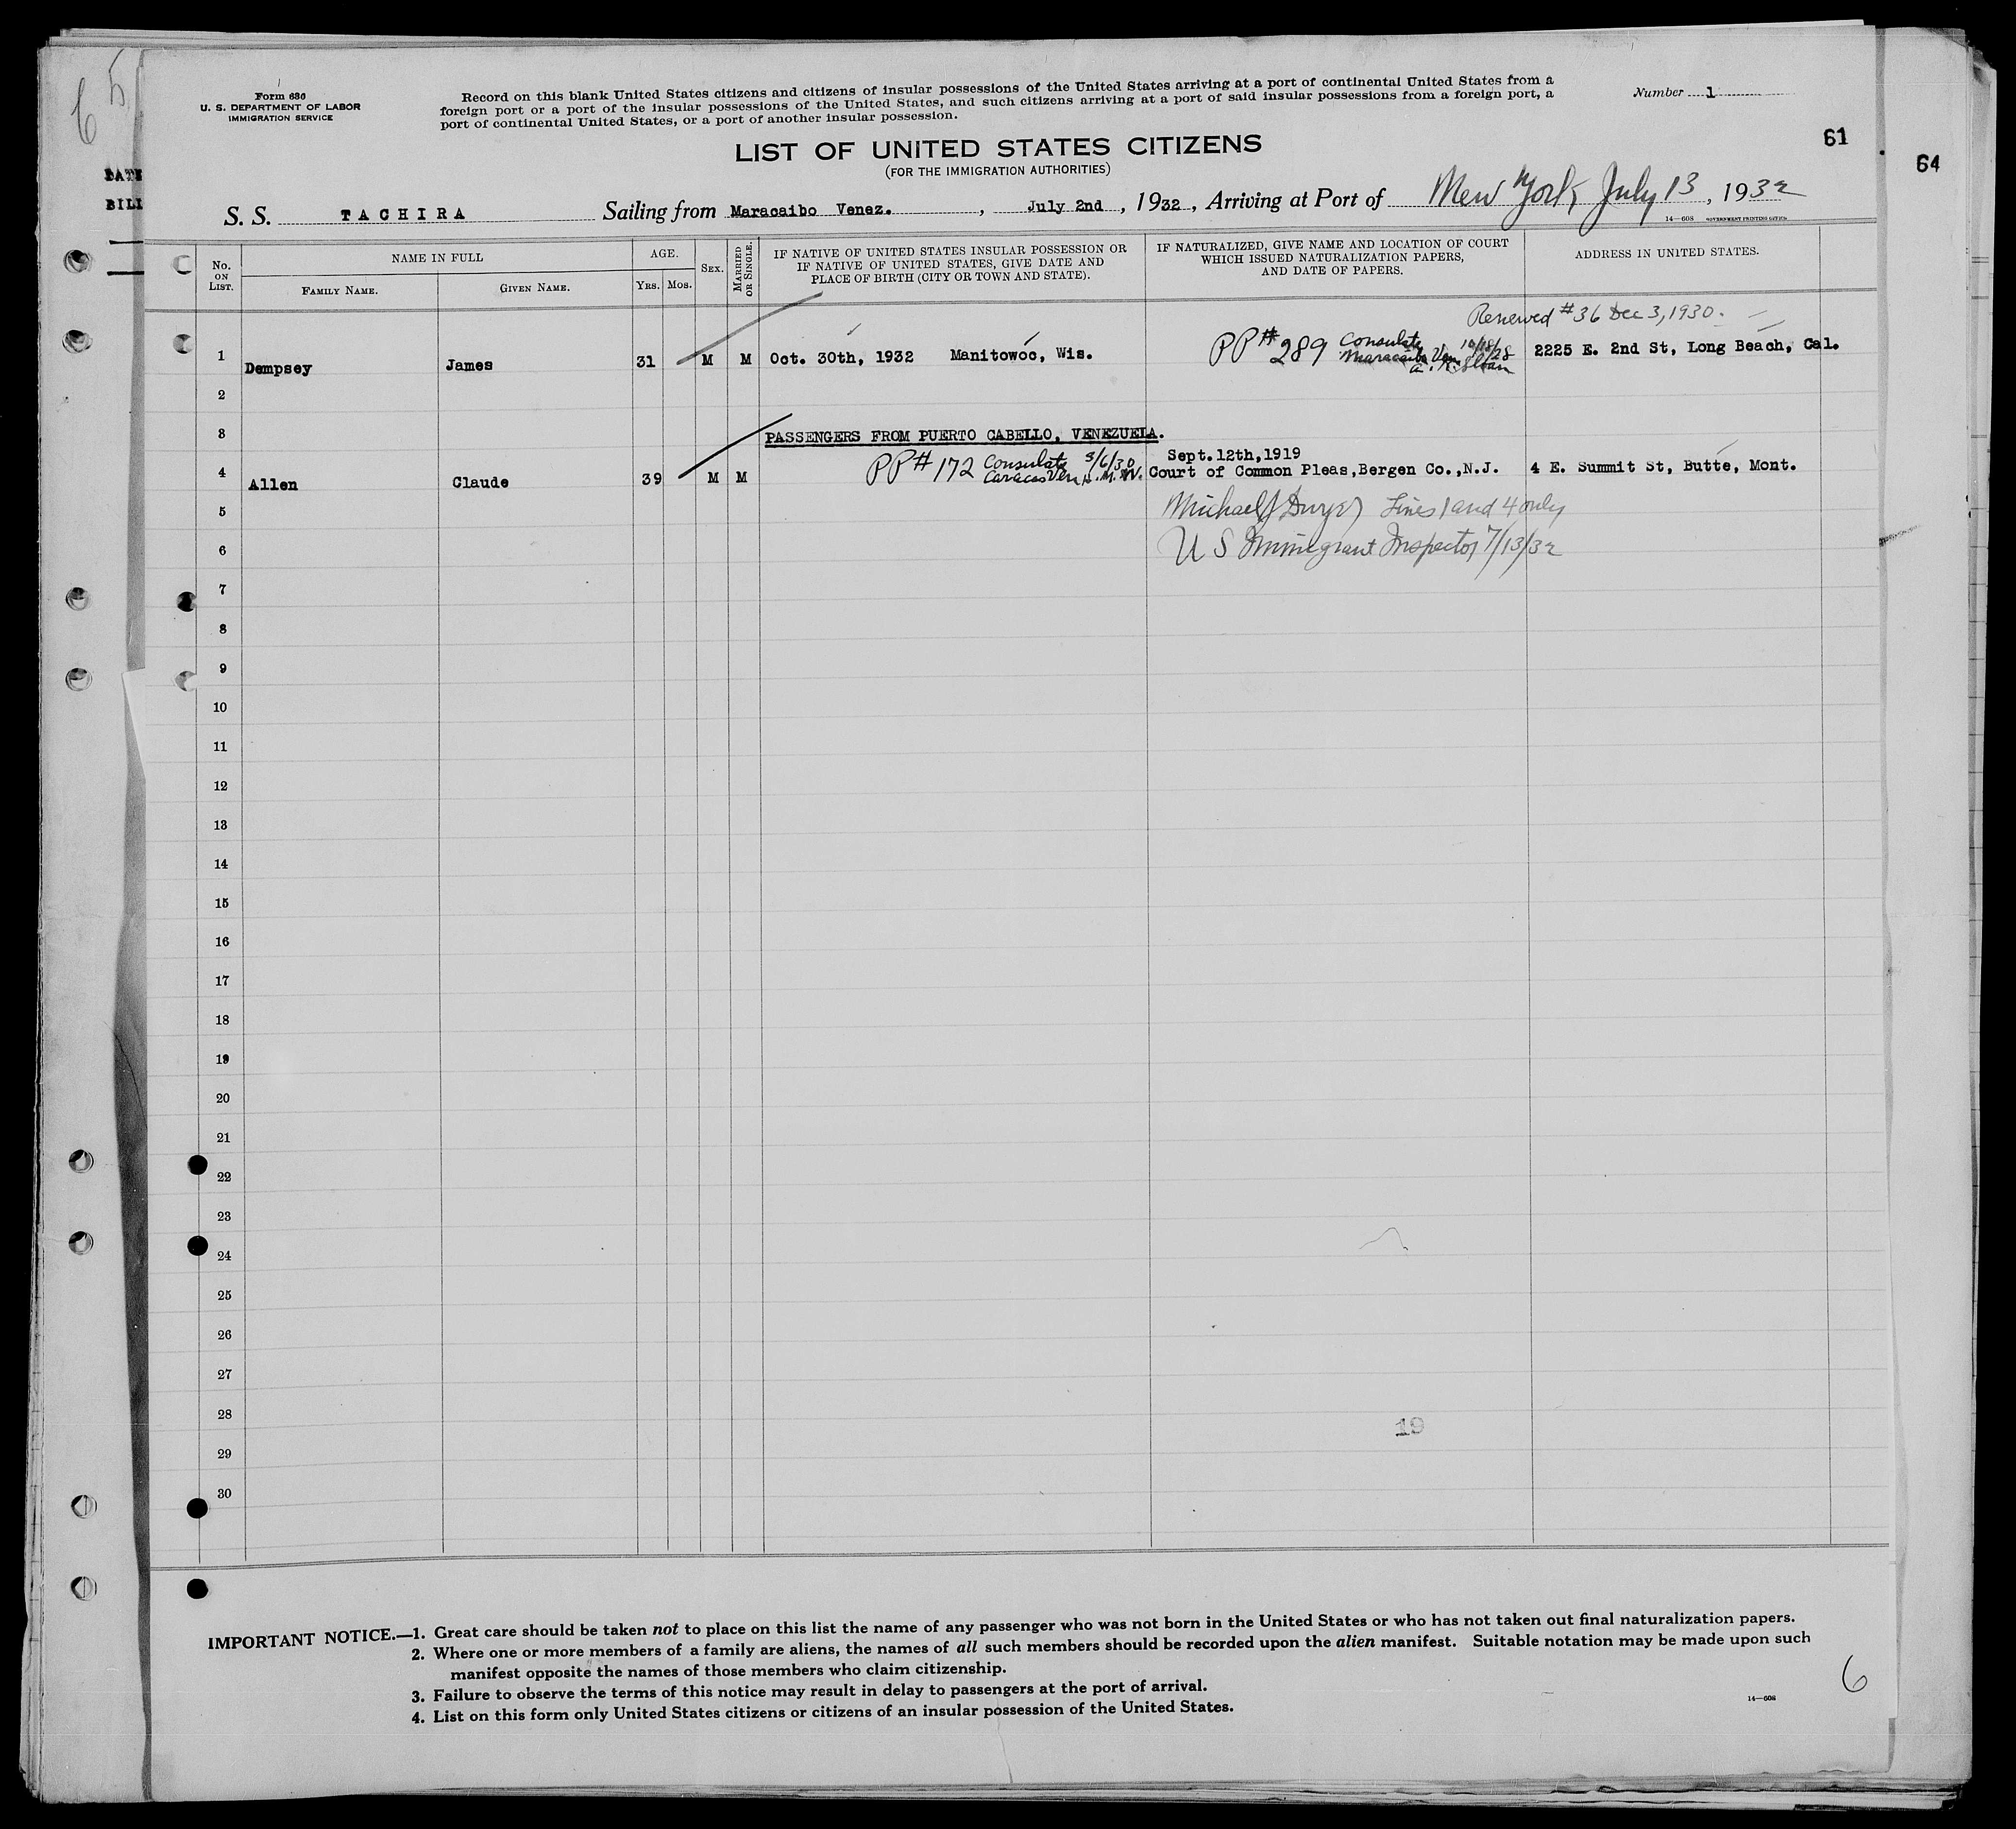 65
Form 630
U. S. DEPARTMENT OF LABOR
IMMIGRATION SERVICE
Record on this blank United States citizens and citizens of insular possessions of the United States arriving at a port of continental United States from a
foreign port or a port of the insular possessions of the United States, and such citizens arriving at a port of said insular possessions from a foreign port, a
port of continental United States, or a port of another insular possession.
Number 1
61
64
DATE
BILL
LIST OF UNITED STATES CITIZENS
(FOR THE IMMIGRATION AUTHORITIES)
S. S. TACHIRA Sailing from Maracaibo Venez. , July 2nd , 1932 , Arriving at Port of New York, July 13 , 1932
14—608 GOVERNMENT PRINTING OFFICE
No. ON LIST. NAME IN FULL FAMILY NAME. GIVEN NAME. AGE. YRS. MOS. SEX. MARRIED OR SINGLE. IF NATIVE OF UNITED STATES INSULAR POSSESSION OR IF NATIVE OF UNITED STATES, GIVE DATE AND PLACE OF BIRTH (CITY OR TOWN AND STATE). IF NATURALIZED, GIVE NAME AND LOCATION OF COURT WHICH ISSUED NATURALIZATION PAPERS, AND DATE OF PAPERS. ADDRESS IN UNITED STATES.
Renewed #36 Dec 3, 1930.
1 Dempsey James 31 M M Oct. 30th, 1932 Manitowoc, Wis. PP# 289 Consulate Maracaibo Ven. 10/18/28 A. K. Sloan 2225 E. 2nd St, Long Beach, Cal.
2
3 PASSENGERS FROM PUERTO CABELLO, VENEZUELA.
Sept.12th,1919
4 Allen Claude 39 M M PP# 172 Consulate Caracas Ven 3/6/30 H.M.W. Court of Common Pleas,Bergen Co.,N.J. 4 E. Summit St, Butte, Mont.
5 Michael J Dwyer Lines 1 and 4 only
6 U S Immigrant Inspector 7/13/32
7
8
9
10
11
12
13
14
15
16
17
18
19
20
21
22
23
24
25
26
27
28
19
29
30
IMPORTANT NOTICE.—1. Great care should be taken not to place on this list the name of any passenger who was not born in the United States or who has not taken out final naturalization papers.
2. Where one or more members of a family are aliens, the names of all such members should be recorded upon the alien manifest. Suitable notation may be made upon such
manifest opposite the names of those members who claim citizenship.
3. Failure to observe the terms of this notice may result in delay to passengers at the port of arrival.
4. List on this form only United States citizens or citizens of an insular possession of the United States.
14—608
6